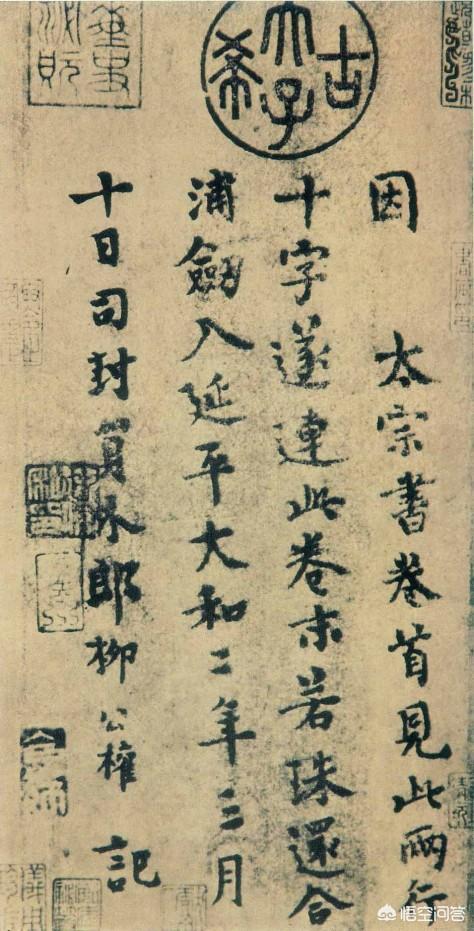 古希天子
因 太宗書卷首見此兩行
十字遂連此卷末若珠還合
浦劍入延平大和二年三月
十日司封員外郎柳公權記
悟空问答